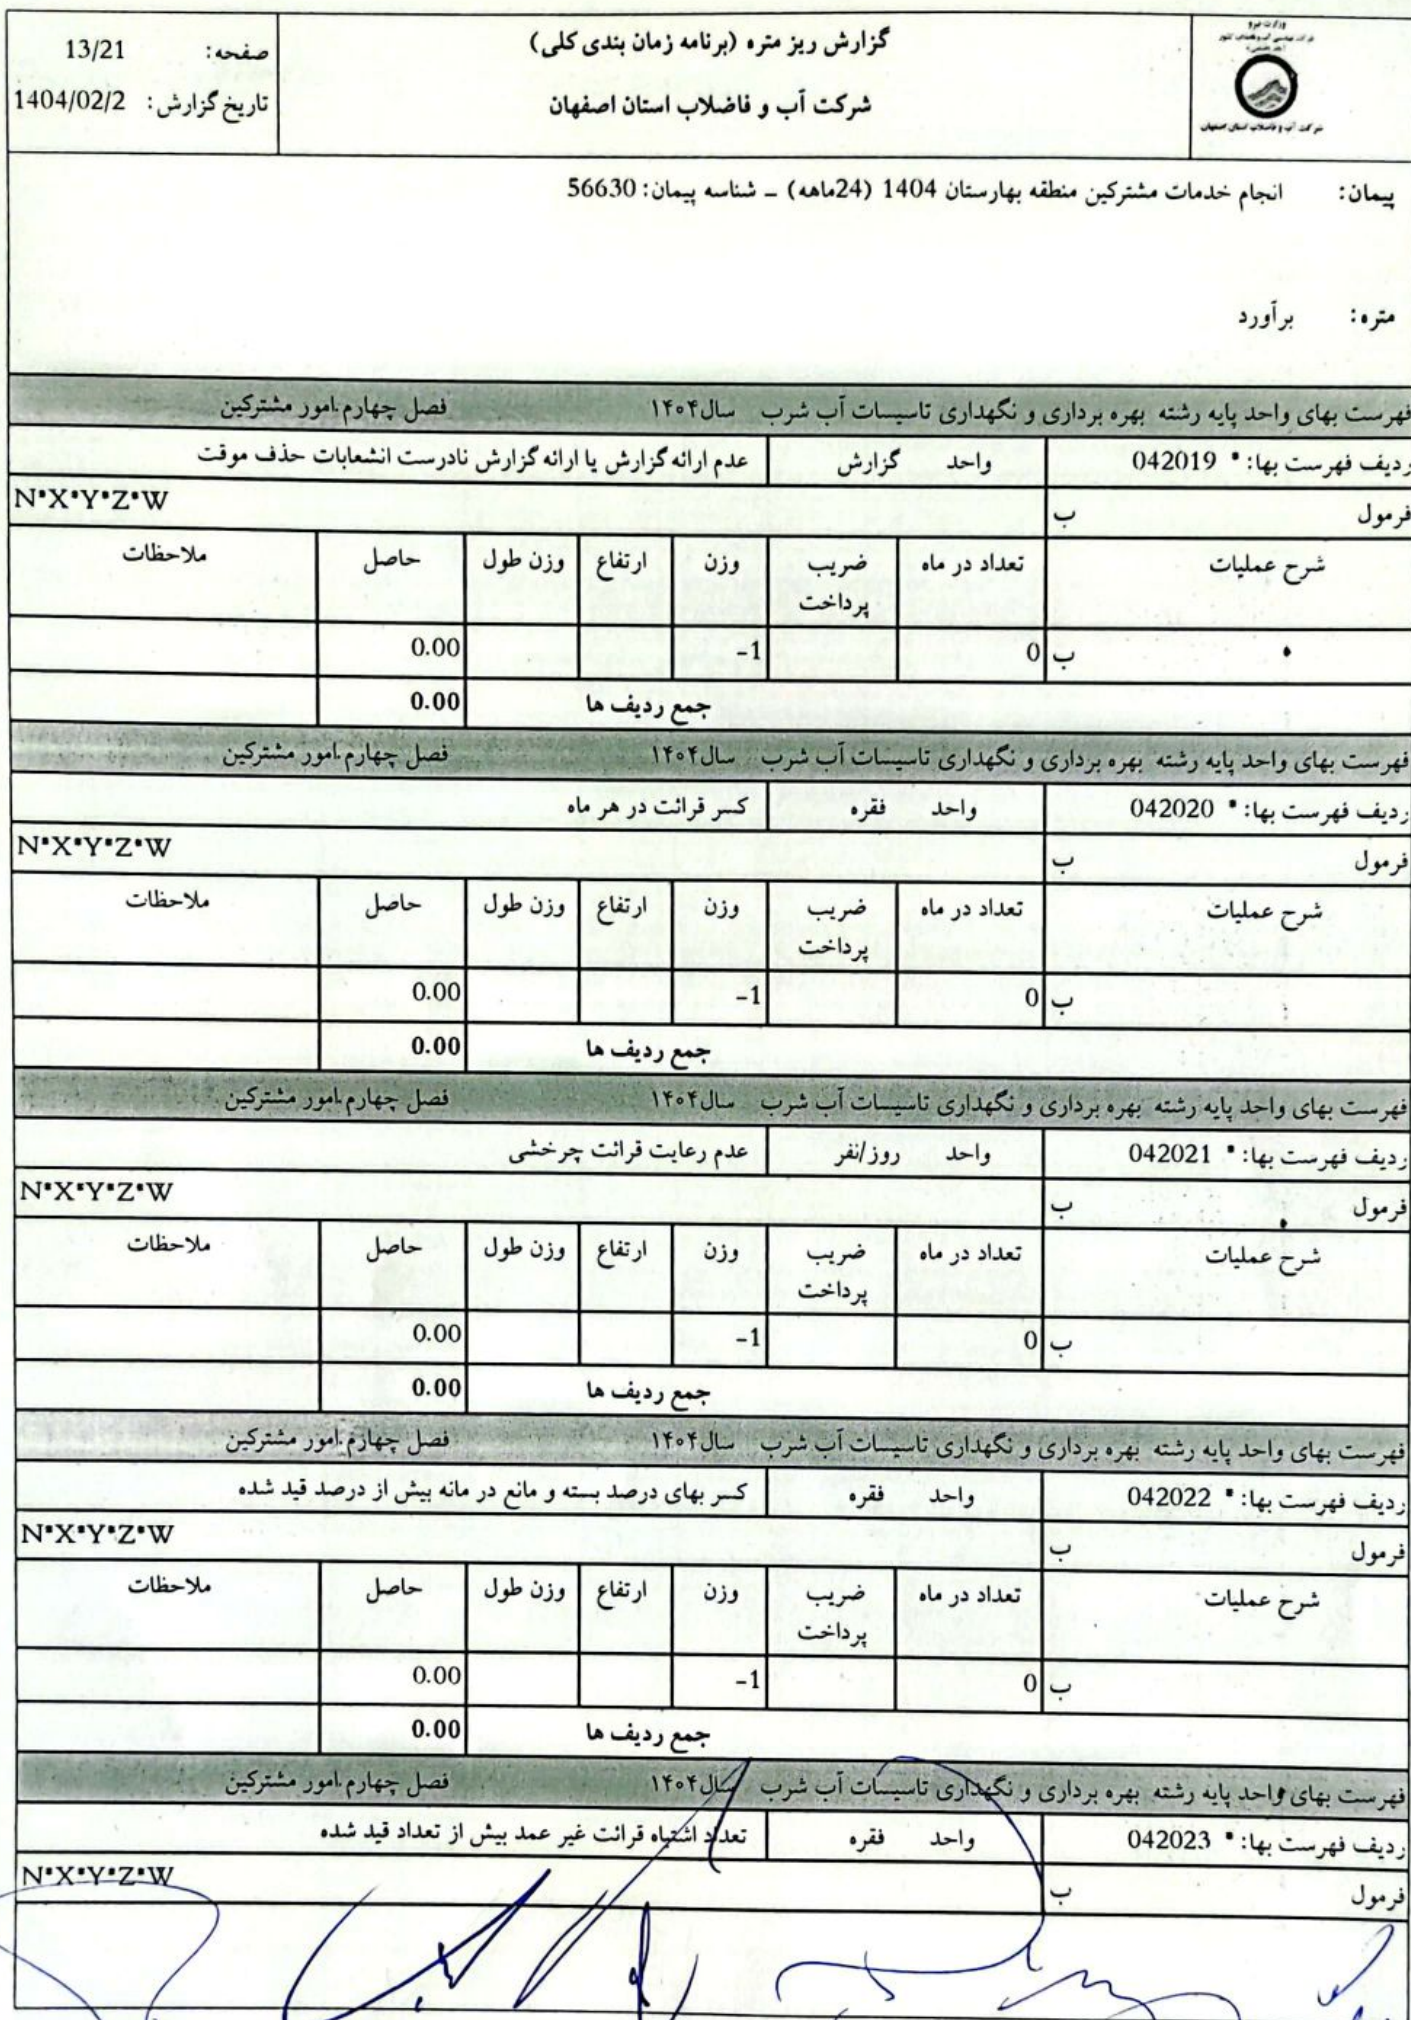 وزارت نیرو
شرکت آب و فاضلاب استان اصفهان
گزارش ریز متره (برنامه زمان بندی کلی)
شرکت آب و فاضلاب استان اصفهان
صفحه: 13/21
تاریخ گزارش: 1404/02/2
پیمان: انجام خدمات مشترکین منطقه بهارستان 1404 (24ماهه) - شناسه پیمان: 56630
متره: برآورد
فهرست بهای واحد پایه رشته بهره برداری و نگهداری تاسیسات آب شرب سال۱۴۰۴ فصل چهارم.امور مشترکین
ردیف فهرست بها: * 042019 واحد گزارش عدم ارائه گزارش یا ارائه گزارش نادرست انشعابات حذف موقت
فرمول ب N*X*Y*Z*W
شرح عملیات تعداد در ماه ضریب پرداخت وزن ارتفاع وزن طول حاصل ملاحظات
ب 0 -1 0.00
جمع ردیف ها 0.00
فهرست بهای واحد پایه رشته بهره برداری و نگهداری تاسیسات آب شرب سال۱۴۰۴ فصل چهارم.امور مشترکین
ردیف فهرست بها: * 042020 واحد فقره کسر قرائت در هر ماه
فرمول ب N*X*Y*Z*W
شرح عملیات تعداد در ماه ضریب پرداخت وزن ارتفاع وزن طول حاصل ملاحظات
ب 0 -1 0.00
جمع ردیف ها 0.00
فهرست بهای واحد پایه رشته بهره برداری و نگهداری تاسیسات آب شرب سال۱۴۰۴ فصل چهارم.امور مشترکین
ردیف فهرست بها: * 042021 واحد روز/نفر عدم رعایت قرائت چرخشی
فرمول ب N*X*Y*Z*W
شرح عملیات تعداد در ماه ضریب پرداخت وزن ارتفاع وزن طول حاصل ملاحظات
ب 0 -1 0.00
جمع ردیف ها 0.00
فهرست بهای واحد پایه رشته بهره برداری و نگهداری تاسیسات آب شرب سال۱۴۰۴ فصل چهارم.امور مشترکین
ردیف فهرست بها: * 042022 واحد فقره کسر بهای درصد بسته و مانع در مانه بیش از درصد قید شده
فرمول ب N*X*Y*Z*W
شرح عملیات تعداد در ماه ضریب پرداخت وزن ارتفاع وزن طول حاصل ملاحظات
ب 0 -1 0.00
جمع ردیف ها 0.00
فهرست بهای واحد پایه رشته بهره برداری و نگهداری تاسیسات آب شرب سال۱۴۰۴ فصل چهارم.امور مشترکین
ردیف فهرست بها: * 042023 واحد فقره تعداد اشتباه قرائت غیر عمد بیش از تعداد قید شده
فرمول ب N*X*Y*Z*W